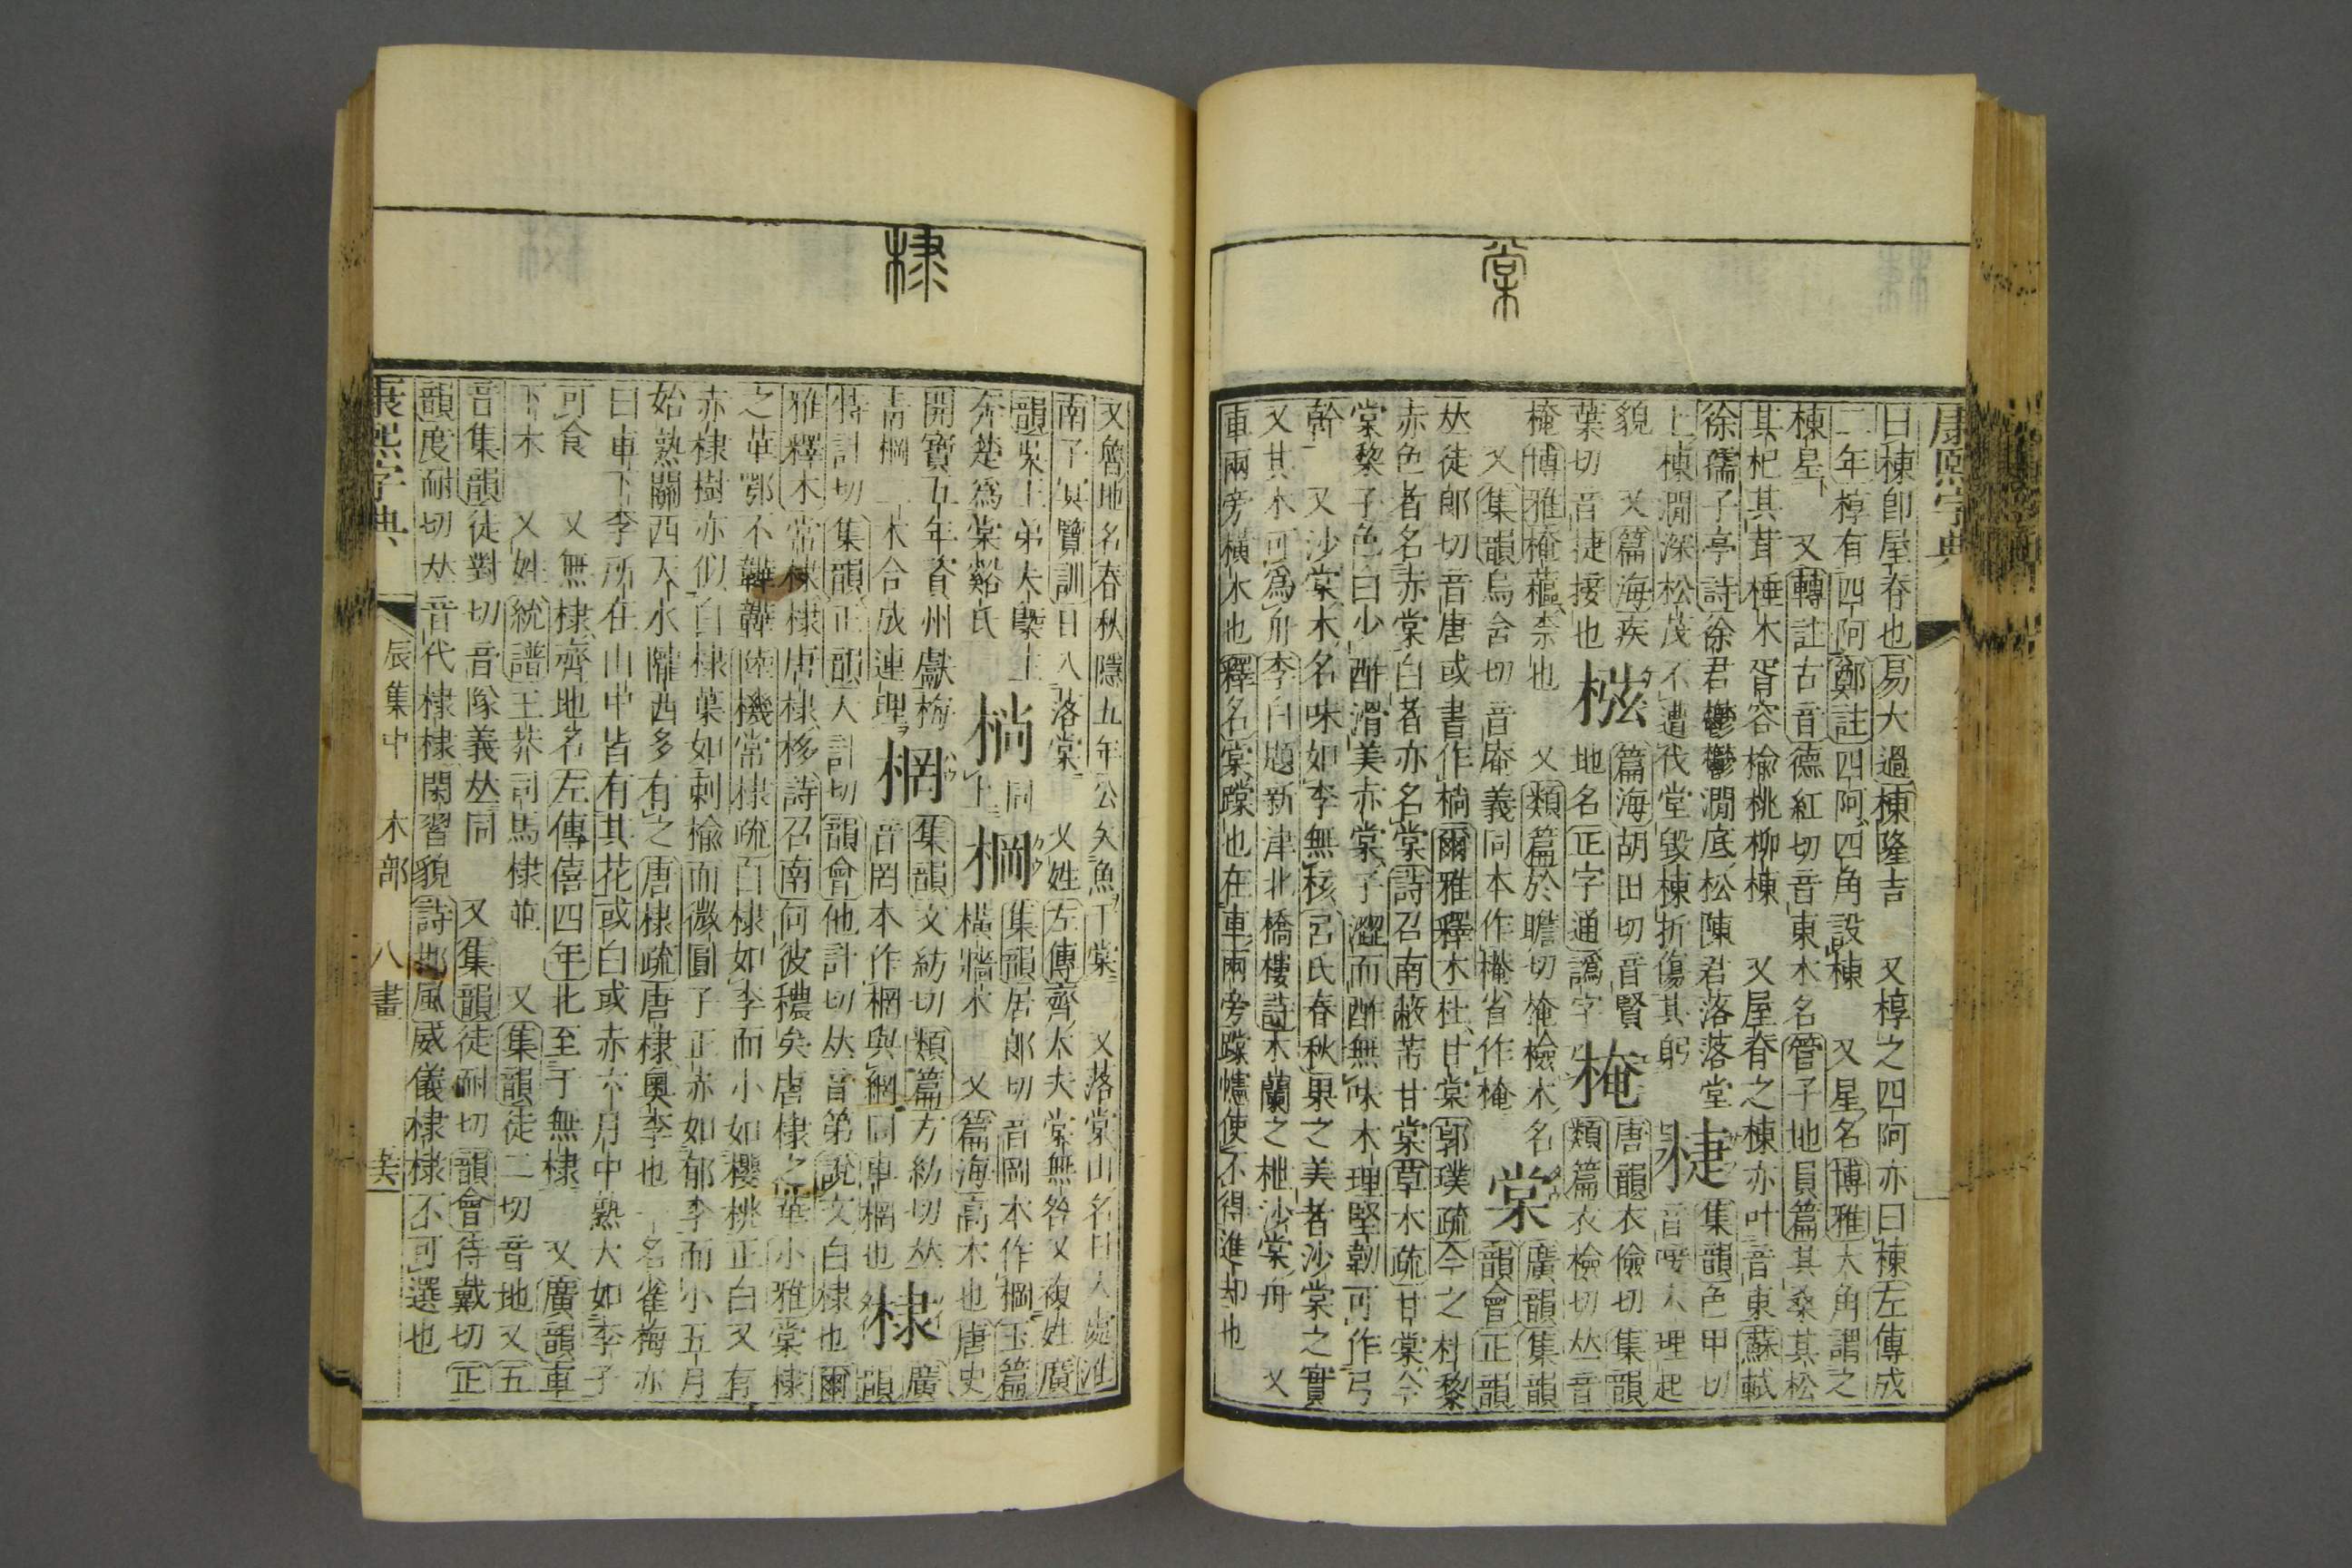 康熙字典
棠
曰棟卽屋脊也易大過棟隆吉　又椁之四阿亦曰棟左傳成
二年椁有四阿鄭註四阿四角設棟　又星名博雅大角謂之
棟星　又轉註古音德紅切音東木名管子地員篇其桑其松
其杞其茸棰木胥容楡桃柳棟　又屋脊之棟亦叶音東蘇軾
徐孺子亭詩徐君鬱鬱澗底松陳君落落堂　集韻色甲切
上棟澗深松茂不遭伐堂毀棟折傷其躬　音唼木理起
貌　又篇海疾　篇海胡田切音賢　唐韻衣儉切集韻
葉切音捷接也　地名正字通譌字　㭺　類篇衣檢切𠀤音
㭺博雅㭺蓲柰也　又類篇於瞻切㭺檢木名　廣韻集韻
又集韻烏含切音庵義同本作省作㭺　棠　韻會正韻
𠀤徒郎切音唐或書作㭻爾雅釋木杜甘棠郭璞疏今之杜黎
赤色者名赤棠白者亦名棠詩召南蔽芾甘棠草木疏甘棠今
棠黎子色白少酢滑美赤棠子澀而酢無味木理堅韌可作弓
幹　又沙棠木名味如李無核呂氏春秋果之美者沙棠之實
又其木可爲舟李白題新津北橋樓詩木蘭之枻沙棠舟　又
車兩旁橫木也釋名棠蹚也在車兩旁蹚幰使不得進却也
棣
又魯地名春秋隱五年公矢魚于棠　又落棠山名日入處淮
南子冥覽訓日入落棠　又姓左傳齊大夫棠無咎又複姓廣
韻吳王弟夫槩王　㭻　同上　棡　集韻居郎切音岡本作棡玉篇
奔楚爲棠谿氏　橫牆木　又篇海高木也唐史
開寶五年資州獻梅　棢　集韻文紡切類篇方紡切𠀤　廣
靑棡一木合成連理　音罔本作棢與網同車棢也　棣　韻
特計切集韻正韻大計切韻會他計切𠀤音第說文白棣也爾
雅釋木常棣棣唐棣栘詩召南何彼穠矣唐棣之華小雅棠棣
之華鄂不韡韡陸機常棣疏白棣如李而小如櫻桃正白又有
赤棣樹亦似白棣葉如刺楡而微圓子正赤如郁李而小五月
始熟關西天水隴西多有之唐棣疏唐棣奧李也一名雀梅亦
曰車下李所在山中皆有其花或白或赤六月中熟大如李子
可食　又無棣齊地名左傳僖四年北至于無棣　又廣韻車
下木　又姓統譜王莽司馬棣並　又集韻徒二切音地又五
音集韻徒對切音隊義𠀤同　又集韻徒耐切韻會待戴切正
韻度耐切𠀤音代棣棣閑習貌詩邶風威儀棣棣不可選也
康熙字典　辰集中　木部　八畫